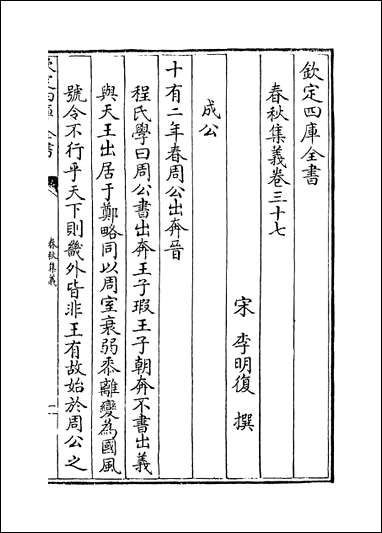 欽定四庫全書
春秋集義卷三十七
宋 李明復 撰
成公
十有二年春周公出奔晉
程氏學曰周公書出奔王子瑕王子朝奔不書出義
與天王出居于鄭略同以周室衰弱黍離變為國風
號令不行乎天下則畿外皆非王有故始於周公之
春秋集義